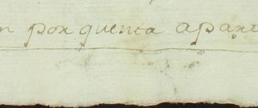 n por quenta apart